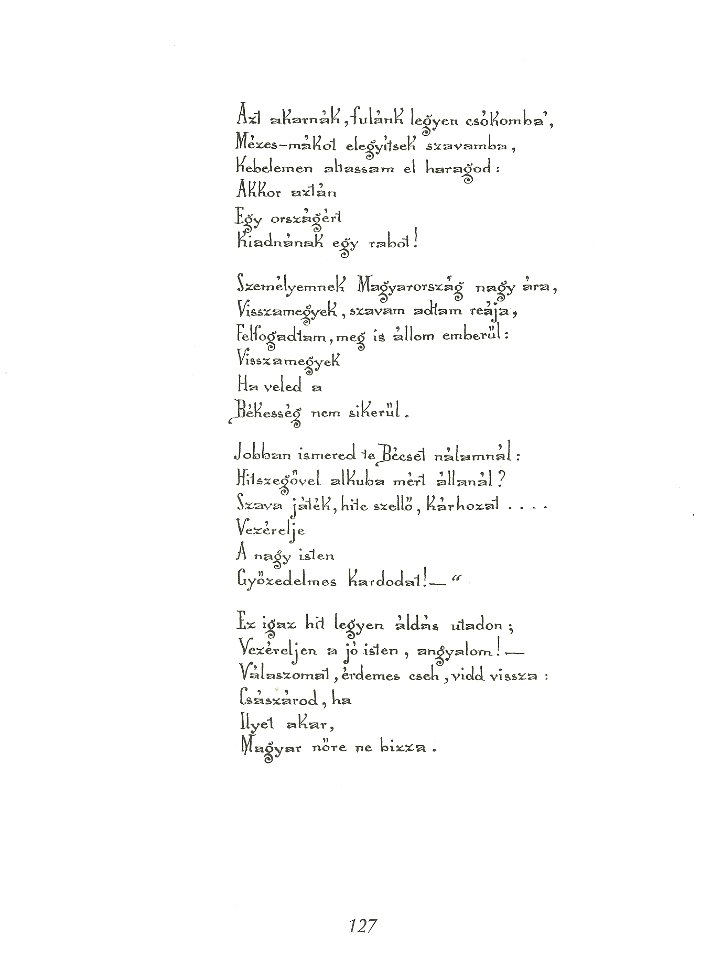 Azt akarnák, fulánk legyen csókomba',
Mézes-mákot elegyítsek szavamba,
Kebelemen altassam el haragod:
Akkor aztán
Egy országért
Kiadnának egy rabot!
Személyemnek Magyarország nagy ára,
Visszamegyek, szavam adtam reája,
Felfogadtam, meg is állom emberül:
Visszamegyek
Ha veled a
Békesség nem sikerül.
Jobban ismered te Bécset nálamnál:
Hitszegővel alkuba mért állanál?
Szava játék, hite szellő, kárhozat ....
Vezérelje
A nagy isten
Győzedelmes kardodat!—“
Ez igaz hit legyen áldás utadon;
Vezéreljen a jó isten, angyalom!—
Válaszomat, érdemes cseh, vidd vissza:
Császárod, ha
Ilyet akar,
Magyar nőre ne bizza.
127